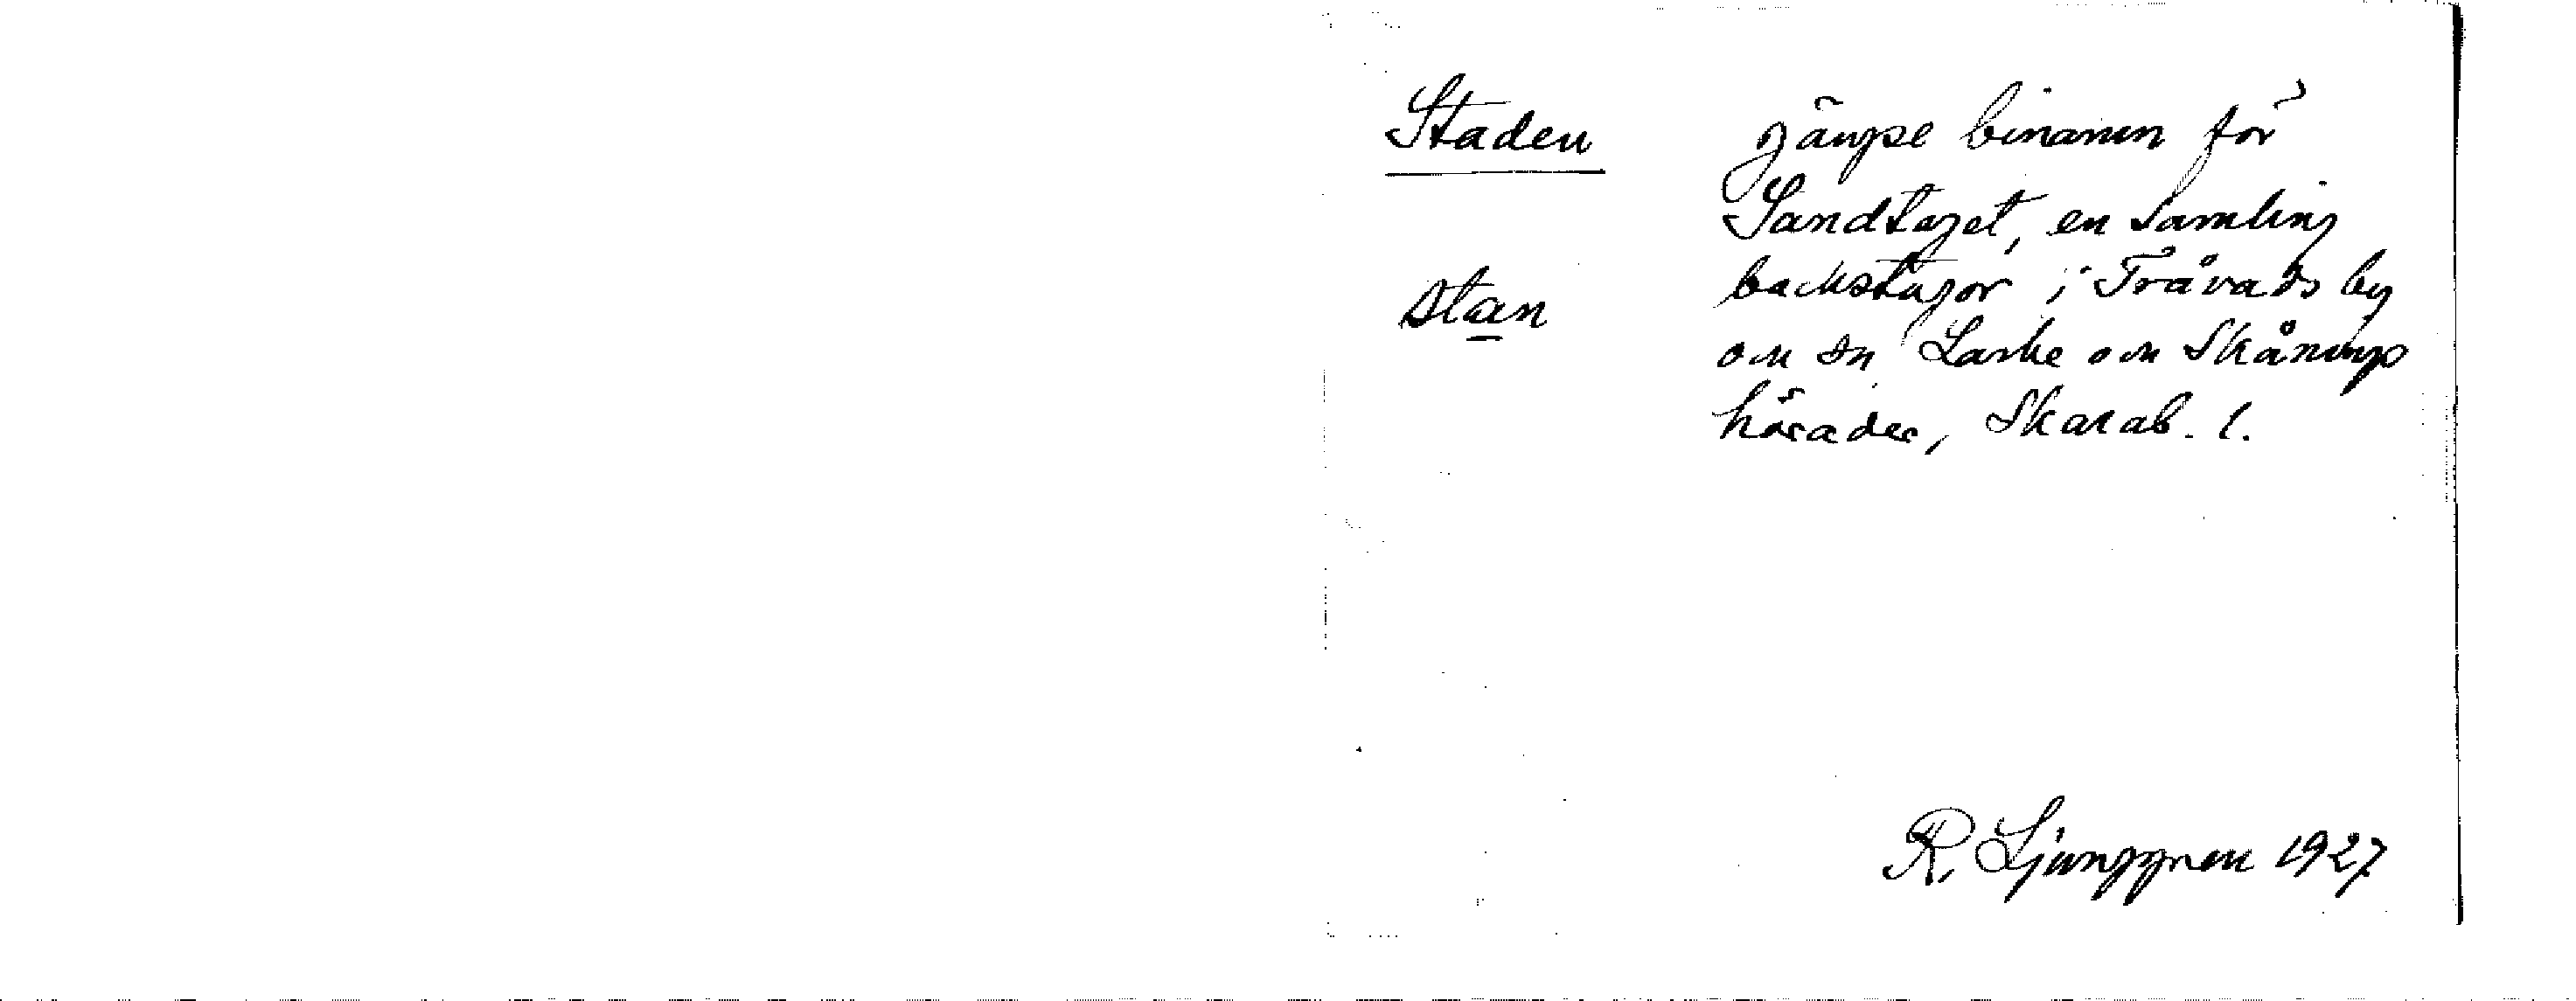 Staden
stan
gängse binamn för
Sandtaget, en samling
backstugor i Trävads by
och sn Laske och Skånings
härader, Skarab. l.
R. Ljunggren 1927